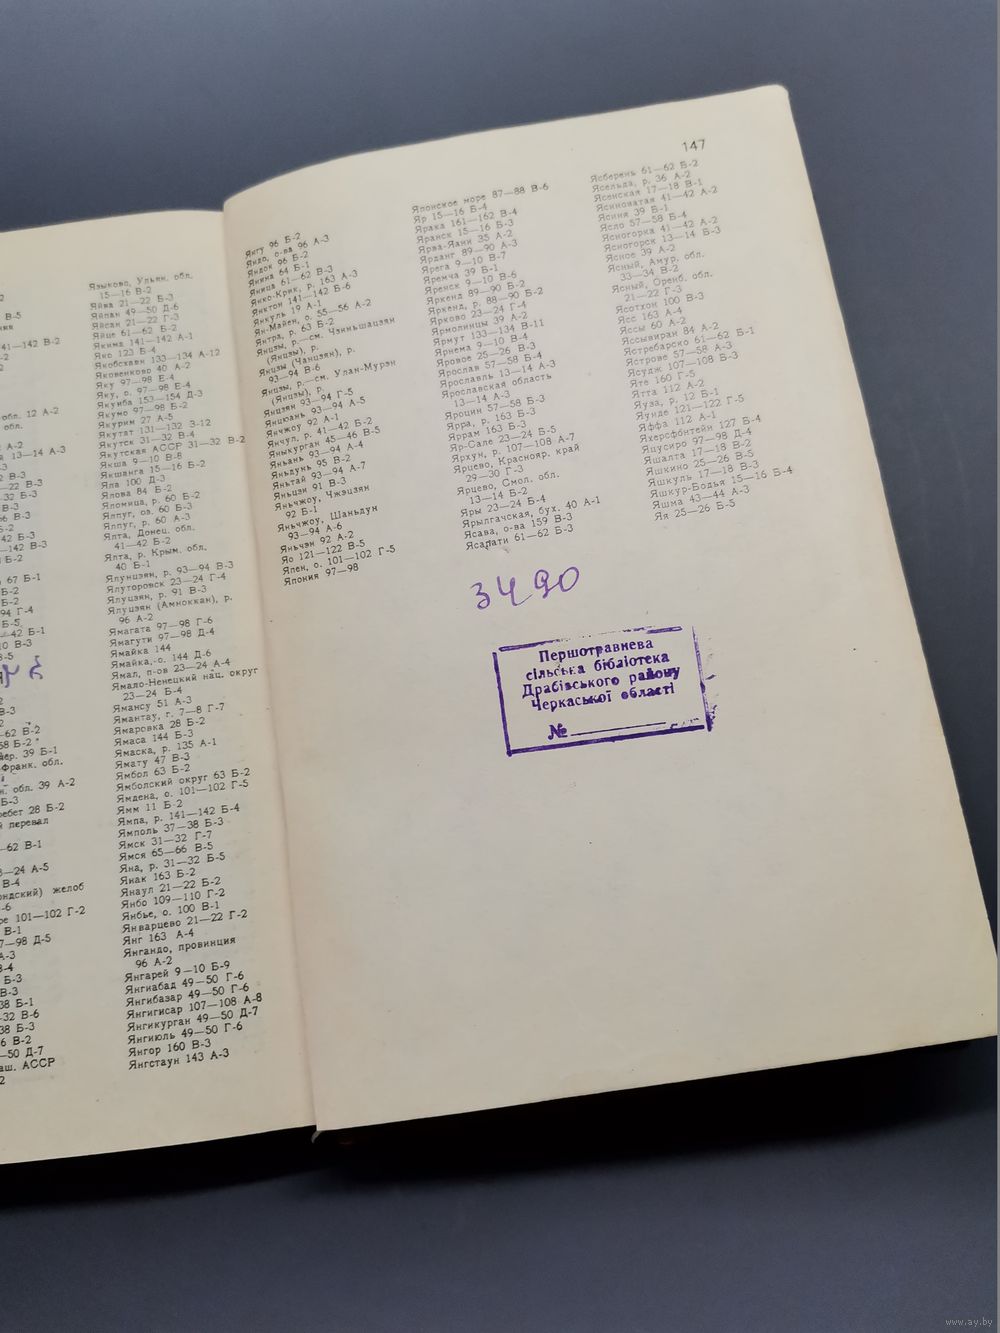 147
Языково, Ульян. обл.
15—16 В-2
Яйва 21—22 Б-3
Яйпан 49—50 Д-6
Яйсан 21—22 Г-3
Яйце 61—62 Б-2
Якима 141—142 А-1
Яко 123 Б-4
Якобсхавн 133—134 А-12
Яковенково 40 А-2
Яку 97—98 Е-4
Яку, о. 97—98 Е-4
Якуиба 153—154 Д-3
Якумо 97—98 Б-2
Якурим 27 А-5
Якутат 131—132 З-12
Якутск 31—32 В-4
Якутская АССР 31—32 В-2
Якша 9—10 В-8
Якшанга 15—16 Б-2
Яла 100 Д-3
Ялова 84 Б-2
Яломица, р. 60 Б-2
Ялпуг, оз. 60 Б-3
Ялпуг, р. 60 А-3
Ялта, Донец. обл.
41—42 Б-2
Ялта, р. Крым. обл.
40 Б-1
Ялунцзян, р. 93—94 В-3
Ялуторовск 23—24 Г-4
Ялуцзян, р. 91 В-3
Ялуцзян (Амноккан), р.
96 А-2
Ямагата 97—98 Г-6
Ямагути 97—98 Д-4
Ямайка 144
Ямайка, о. 144 Д-6
Ямал, п-ов 23—24 А-4
Ямало-Ненецкий нац. округ
23—24 Б-4
Ямансу 51 А-3
Ямантау, г. 7—8 Г-7
Ямаровка 28 Б-2
Ямаса 144 Б-3
Ямаска, р. 135 А-1
Ямату 47 В-3
Ямбол 63 Б-2
Ямболский округ 63 Б-2
Ямдена, о. 101—102 Г-5
Ямм 11 Б-2
Ямпа, р. 141—142 Б-4
Ямполь 37—38 Б-3
Ямск 31—32 Г-7
Ямся 65—66 В-5
Яна, р. 31—32 Б-5
Янак 163 Б-2
Янаул 21—22 Б-2
Янбо 109—110 Г-2
Янбье, о. 100 В-1
Январцево 21—22 Г-2
Янг 163 А-4
Янгандо, провинция
96 А-2
Янгарей 9—10 Б-9
Янгиабад 49—50 Г-6
Янгибазар 49—50 Г-6
Янгигисар 107—108 А-8
Янгикурган 49—50 Д-7
Янгиюль 49—50 Г-6
Янгор 160 В-3
Янгстаун 143 А-3
Янгу 96 Б-2
Яндо, о-ва 96 А-3
Яндок 96 Б-2
Янина 64 Б-1
Яница 61—62 В-3
Янко-Крик, р. 163 А-3
Янктон 141—142 Б-6
Янкуль 19 А-1
Ян-Майен, о. 55—56 А-2
Янтра, р. 63 Б-2
Янцзы, р.—см. Чзиньшацзян
(Янцзы), р.
Янцзы (Чанцзян), р.
93—94 В-6
Янцзы, р.—см. Улан-Мурэн
(Янцзы), р.
Янцзян 93—94 Г-5
Янцюань 93—94 А-5
Янчжоу 92 А-1
Янчул, р. 41—42 Б-2
Яныкурган 45—46 В-5
Яньань 93—94 А-4
Яньдунь 95 В-2
Яньтай 93—94 А-7
Яньцзи 91 В-3
Яньчжоу, Чжэцзян
92 Б-1
Яньчжоу, Шаньдун
93—94 А-6
Яньчэн 92 А-2
Яо 121—122 В-5
Япен, о. 101—102 Г-5
Япония 97—98
Японское море 87—88 В-6
Яр 15—16 Б-4
Ярака 161—162 В-4
Яранск 15—16 Б-3
Ярва-Яани 35 А-2
Ярданг 89—90 А-3
Ярега 9—10 В-7
Яремча 39 Б-1
Яренск 9—10 В-6
Яркенд 89—90 Б-2
Яркенд, р. 88—90 Б-2
Ярково 23—24 Г-4
Ярмолинцы 39 А-2
Ярмут 133—134 В-11
Ярнема 9—10 В-4
Яровое 25—26 В-3
Ярослав 57—58 Б-4
Ярославль 13—14 А-3
Ярославская область
13—14 А-3
Яроцин 57—58 Б-3
Ярра, р. 163 Б-3
Яррам 163 Б-3
Яр-Сале 23—24 Б-5
Ярхун, р. 107—108 А-7
Ярцево, Краснояр. край
29—30 Г-3
Ярцево, Смол. обл.
13—14 Б-2
Яры 23—24 Б-4
Ярылгачская, бух. 40 А-1
Ясава, о-ва 159 В-3
Ясапати 61—62 Б-3
Ясберень 61—62 Б-2
Ясельда, р. 36 А-2
Ясенская 17—18 В-1
Ясиноватая 41—42 А-2
Ясиня 39 Б-1
Ясло 57—58 Б-4
Ясногорка 41—42 А-2
Ясногорск 13—14 Б-3
Ясное 39 А-2
Ясный, Амур. обл.
33—34 В-2
Ясный, Оренб. обл.
21—22 Г-3
Ясотхон 100 В-3
Ясс 163 А-4
Яссы 60 А-2
Яссывиран 84 А-2
Ястребарско 61—62 Б-1
Ястрове 57—58 А-3
Ясудж 107—108 Б-3
Яте 160 Г-5
Ятта 112 А-2
Яуза, р. 12 Б-1
Яунде 121—122 Г-5
Яффа 112 А-1
Яхерсфонтейн 127 Б-4
Яцусиро 97—98 Д-4
Яшалта 17—18 В-2
Яшкино 25—26 В-5
Яшкуль 17—18 В-3
Яшкур-Бодья 15—16 Б-4
Яшма 43—44 А-3
Яя 25—26 Б-5
3490
Першотравнева
сільська бібліотека
Драбівського району
Черкаської області
№
www.ay.by